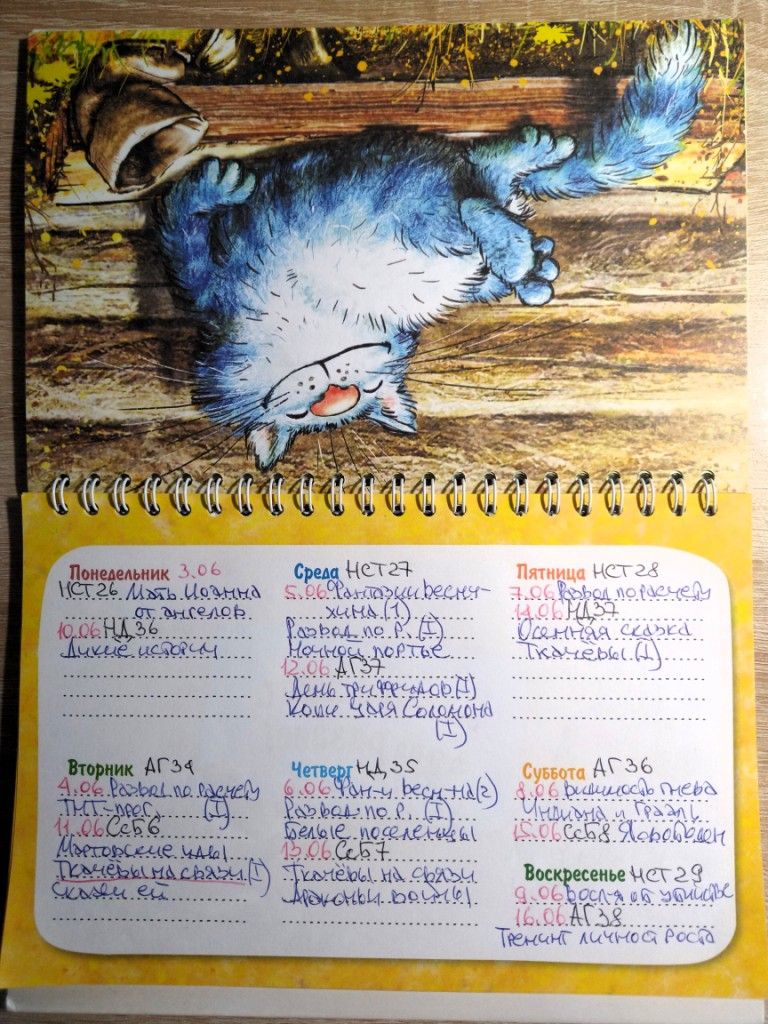 Понедельник 3.06
НСТ26 Мать Иоанна
от ангелов
10.06 НД36
Дикие истории
Вторник АГ34
4.06 Развод по расчету
ТНТ-прог. (I)
11.06 СсБ6
Мартовские иды
Ткачевы на связи (I)
Скажи ей
Среда НСТ27
5.06 Фантазии Весну-
хина (1)
Развод по Р. (I)
Ночной портье
12.06 АГ37
День триффидов (I)
Копи царя Соломона
(I)
Четверг НД35
6.06 Фан-и Весн-на (2)
Развод по Р. (I)
Белые поселенцы
13.06 СсБ7
Ткачевы на связи
Законы войны
Пятница НСТ28
7.06 Развод по расчету
14.06 НД37
Осенняя сказка
Ткачевы (I)
Суббота АГ36
8.06 Видимость гнева
Индиана и Грааль
15.06 СсБ8
Воскресенье НСТ29
9.06 от убийства
16.06 АГ38
Тренинг личност роста